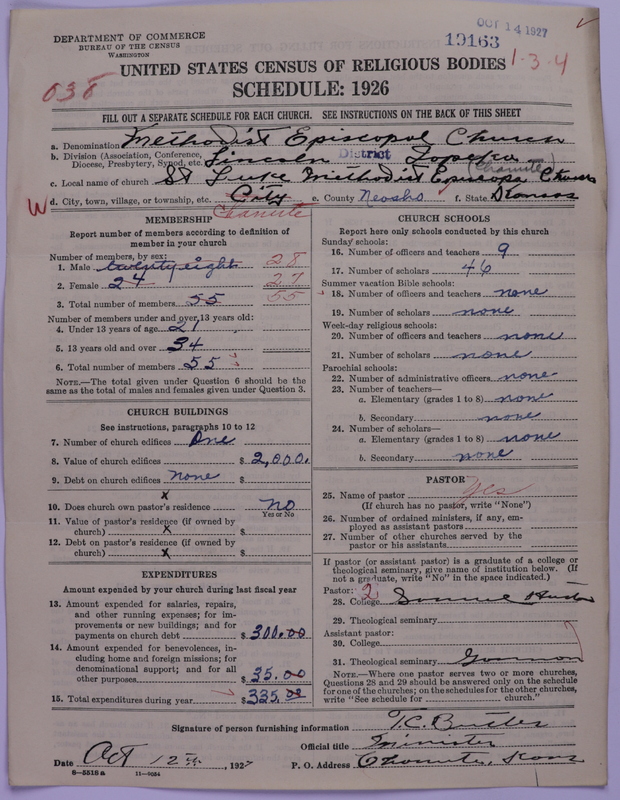 DEPARTMENT OF COMMERCE
BUREAU OF THE CENSUS
WASHINGTON
OCT 14 1927
19163
1-3-4
038
UNITED STATES CENSUS OF RELIGIOUS BODIES
SCHEDULE: 1926
FILL OUT A SEPARATE SCHEDULE FOR EACH CHURCH. SEE INSTRUCTIONS ON THE BACK OF THIS SHEET
a. Denomination Methodist Episcopal Church
b. Division (Association, Conference, Diocese, Presbytery, Synod, etc.) Lincoln District Topeka
(Chanute)
c. Local name of church St Luke Methodist Episcopa Church
W d. City, town, village, or township, etc. City e. County Neosho f. State Kansas
Chanute
MEMBERSHIP
Report number of members according to definition of member in your church
Number of members, by sex:
1. Male twenty eight 28
2. Female 24 27
3. Total number of members 55 55
Number of members under and over 13 years old:
4. Under 13 years of age 21
5. 13 years old and over 34
6. Total number of members 55
NOTE.—The total given under Question 6 should be the same as the total of males and females given under Question 3.
CHURCH BUILDINGS
See instructions, paragraphs 10 to 12
7. Number of church edifices One
8. Value of church edifices $ 2,000.
9. Debt on church edifices None $
x
10. Does church own pastor's residence no
Yes or No
11. Value of pastor's residence (if owned by church) x $
12. Debt on pastor's residence (if owned by church) x $
EXPENDITURES
Amount expended by your church during last fiscal year
13. Amount expended for salaries, repairs, and other running expenses; for improvements or new buildings; and for payments on church debt $ 300.00
14. Amount expended for benevolences, including home and foreign missions; for denominational support; and for all other purposes $ 35.00
15. Total expenditures during year $ 335.00
CHURCH SCHOOLS
Report here only schools conducted by this church
Sunday schools:
16. Number of officers and teachers 9
17. Number of scholars 46
Summer vacation Bible schools:
18. Number of officers and teachers none
19. Number of scholars none
Week-day religious schools:
20. Number of officers and teachers none
21. Number of scholars none
Parochial schools:
22. Number of administrative officers none
23. Number of teachers—
a. Elementary (grades 1 to 8) none
b. Secondary none
24. Number of scholars—
a. Elementary (grades 1 to 8) none
b. Secondary none
PASTOR
25. Name of pastor yes
(If church has no pastor, write "None")
26. Number of ordained ministers, if any, employed as assistant pastors
27. Number of other churches served by the pastor or his assistants
If pastor (or assistant pastor) is a graduate of a college or theological seminary, give name of institution below. (If not a graduate, write "No" in the space indicated.)
Pastor: 2
28. College
29. Theological seminary
Assistant pastor:
30. College
31. Theological seminary Gammon
NOTE.—Where one pastor serves two or more churches, Questions 28 and 29 should be answered only on the schedule for one of the churches; on the schedules for the other churches, write "See schedule for church."
Signature of person furnishing information T.C. Butler
Official title Minister
Date Oct 12th, 1927 P. O. Address Chanute, Kans
8—5518 a 11—9054